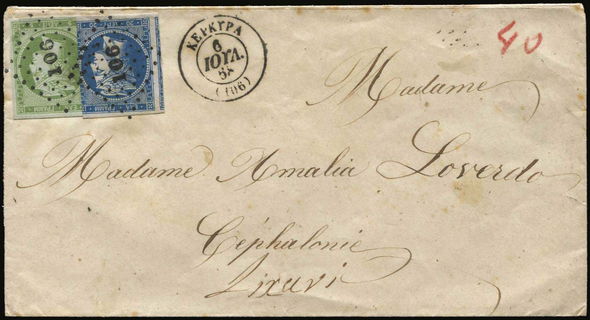 106
106
ΚΕΡΚΥΡΑ
6
ΙΟΥΛ.
(106)
40
Madame
Madame Amalia Loverdo
Céphalonie
Lixuri